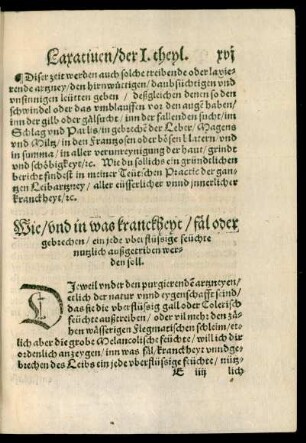 Laxatiuen/der I. theyl. xvj
¶ Diser zeit werden auch solche treibende oder laxie-
rende artzney/den hirnwütigen/daubsüchtigen vnd
vnsinnigen leütten geben / deßgleichen denen so den
schwindel oder das vmblauffen vor den augē haben/
inn der gilb oder gälsucht/inn der fallenden sucht/im
Schlag vnd Parlis/in gebrechē der Leber/Magens
vnd Miltz/in den Frantzosen oder bösen blatern/vnd
in summa/in aller verunreynigung der haut/grindt
vnd schöbigkeyt/ꝛc. Wie du sollichs ein gründtlichen
bericht findest in meiner Teütschen Practic der gan-
tzen Leibartzney / aller eüsserlicher vnnd jnnerlicher
kranckheyt/ꝛc.
Wie/vnd in was kranckheyt/fäl oder
gebrechen/ein jede vberflüssige feüchte
nutzlich außgetriben wer-
den soll.
DIeweil vnder den purgierendē artzneyen/
etlich der natur vnnd eygenschafft seind/
das sie die vberflüssig gall oder Colerisch
feüchte außtreiben/ oder vil mehr den zä-
hen wässerigen Flegmatischen schleim/et-
lich aber die grobe Melancolische feüchte/will ich dir
ordenlich anzeygen/inn was fäl/kranckheyt vnnd ge-
brechen des Leibs ein jede vberflüssige feüchte/nütz-
E iiij lich